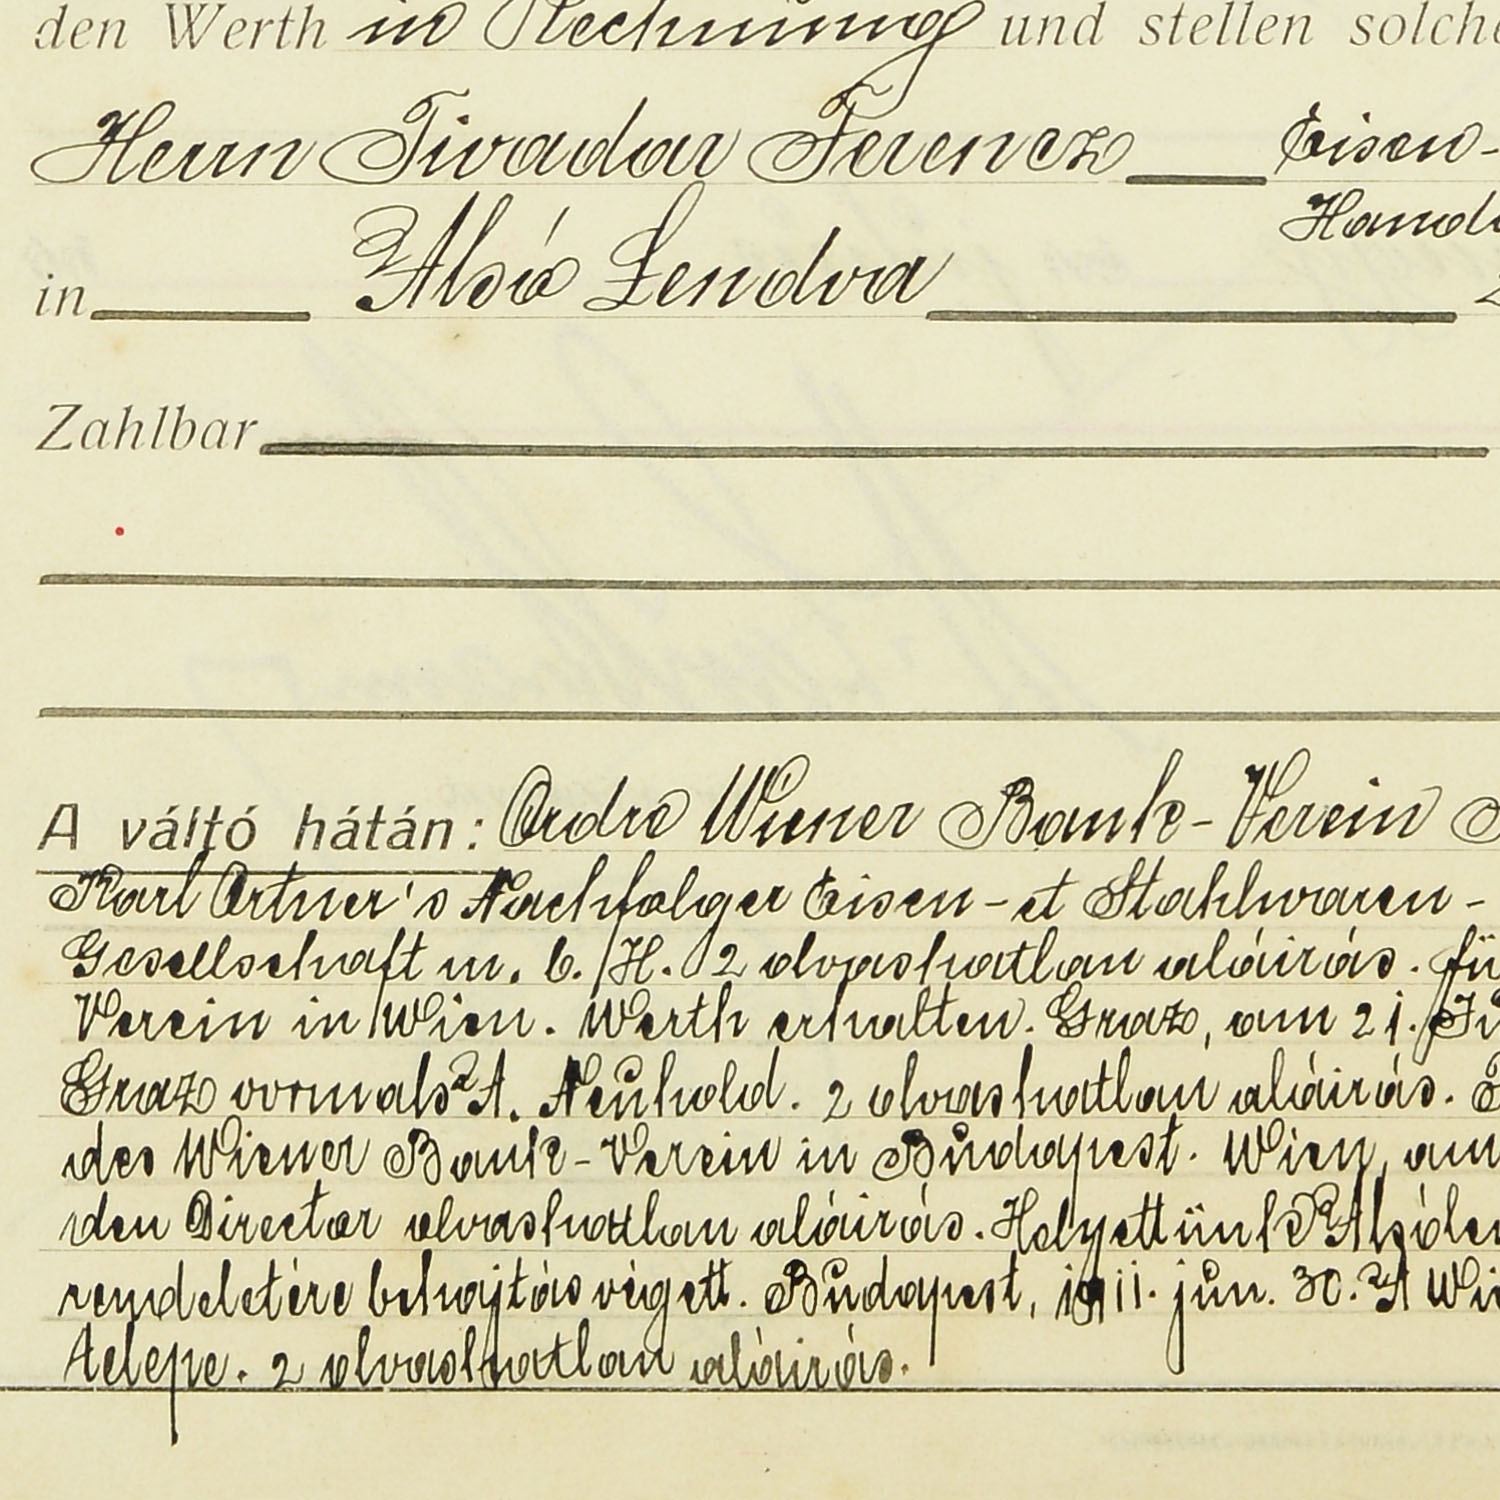 den Werth in Rechnung und stellen solche
Herrn Tivadar Ferencz Eisen-
Hand
in Alsó Lendva
Zahlbar
A váltó hátán: Ordre Wiener Bank-Verein
Karl Ortner's Nachfolger Eisen- et Stahlwaren-
Gesellschaft m. b. H. 2 olvashatlan aláirás. fü
Verein in Wien. Werth erhalten. Graz, am 21. Ju
Graz vormals A. Neuhold. 2 olvashatlan aláirás.
des Wiener Bank-Verein in Budapest. Wien, am
den Director olvashatlan aláirás. Helyettünk Alsólen
rendeletére behajtás végett. Budapest, 1911. jun. 30. A Wie
telepe. 2 olvashatlan aláirás.